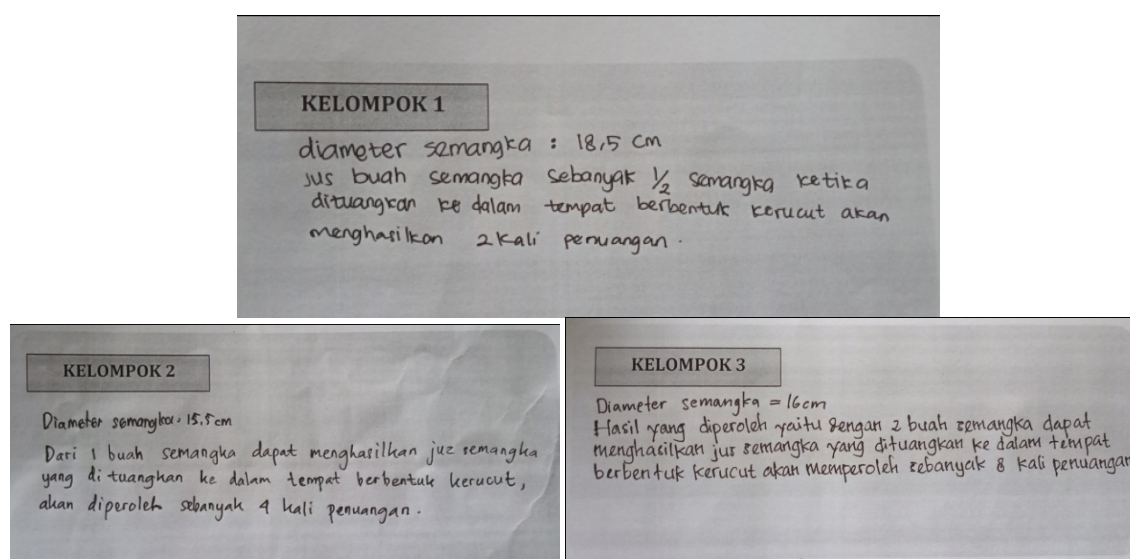 KELOMPOK 1
diameter semangka : 18,5 cm
jus buah semangka sebanyak 1/2 semangka ketika
dituangkan ke dalam tempat berbentuk kerucut akan
menghasilkan 2 kali penuangan.
KELOMPOK 2
Diameter semangka : 15,5 cm
Dari 1 buah semangka dapat menghasilkan juz semangka
yang di tuangkan ke dalam tempat berbentuk kerucut,
akan diperoleh sebanyak 4 kali penuangan.
KELOMPOK 3
Diameter semangka = 16 cm
Hasil yang diperoleh yaitu dengan 2 buah semangka dapat
menghasilkan jus semangka yang dituangkan ke dalam tempat
berbentuk kerucut akan memperoleh sebanyak 8 kali penuangan